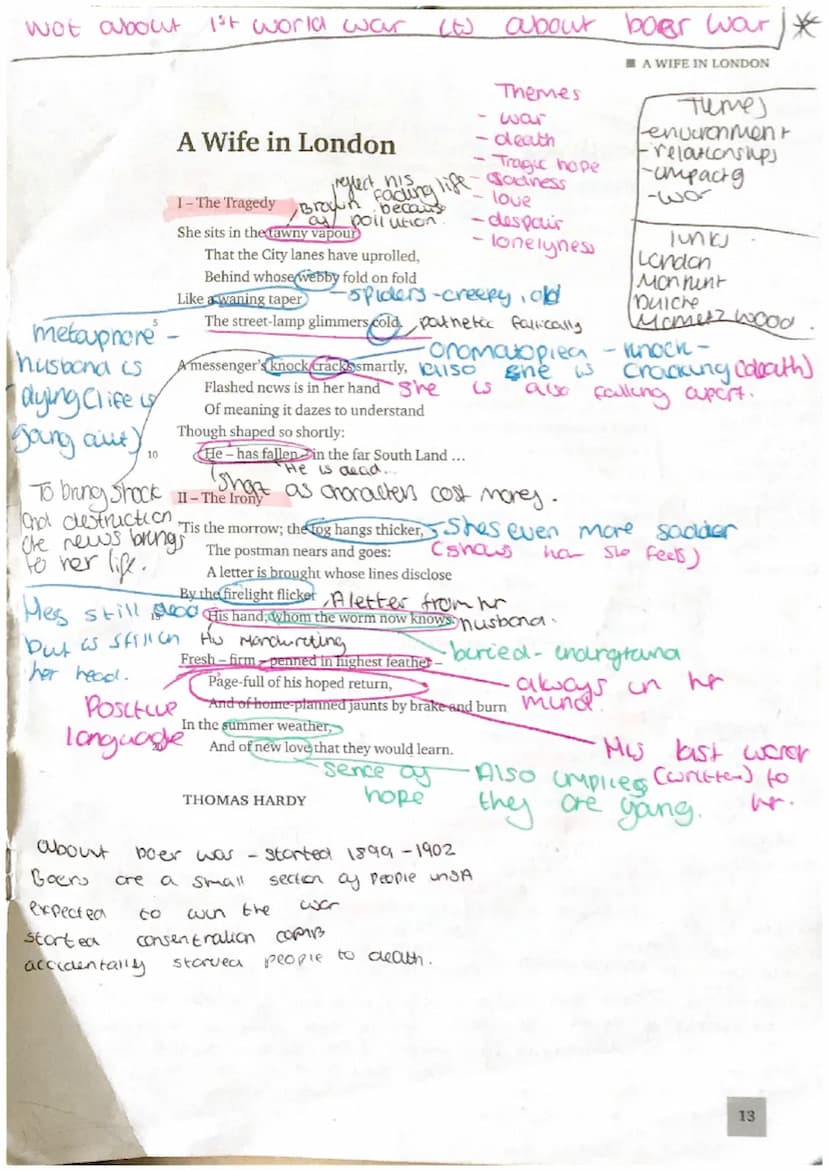 Not about 1st world war its about boer war *
■ A WIFE IN LONDON
Themes
- war
- death
- Tragic hope
- sadness
- love
- despair
- lonelyness
Themes
- environment
- relationships
- impact of
- war
Links
London
Manhunt
Dulche
Mametz Wood.
A Wife in London
reflect his
fading life
Brown because
of pollution.
I – The Tragedy
She sits in the tawny vapour
That the City lanes have uprolled,
Behind whose webby fold on fold
Like a waning taper
- spiders - creepy, old
5
The street-lamp glimmers cold.
pathetic fallically
metaphore -
husband is
dying (life is
going out)
A messenger's knock cracks smartly,
onomatopiea - knock -
also she is cracking (death)
Flashed news is in her hand
She is also falling apart.
Of meaning it dazes to understand
Though shaped so shortly:
10
He – has fallen – in the far South Land ...
He is dead...
Short as characters cost money.
To bring shock
and destruction
the news brings
to her life.
II – The Irony
'Tis the morrow; the fog hangs thicker,
Shes even more sadder
The postman nears and goes:
(shows how she feels)
A letter is brought whose lines disclose
By the firelight flicker
A letter from hr
husband.
His hand, whom the worm now knows:
His Handwriting
Hes still dead
but is still in
her head.
buried - underground
Fresh – firm – penned in highest feather –
always in hr
mind.
Page-full of his hoped return,
And of home-planned jaunts by brake and burn
Positive
language
In the summer weather,
His last word
(written) to
hr.
20
And of new love that they would learn.
sence of
hope
Also implies
they are young.
THOMAS HARDY
about boer war - started 1899 - 1902
Boers are a small section of people in SA
expected to win the war
started consentration camps
accidentally starved people to death.
13